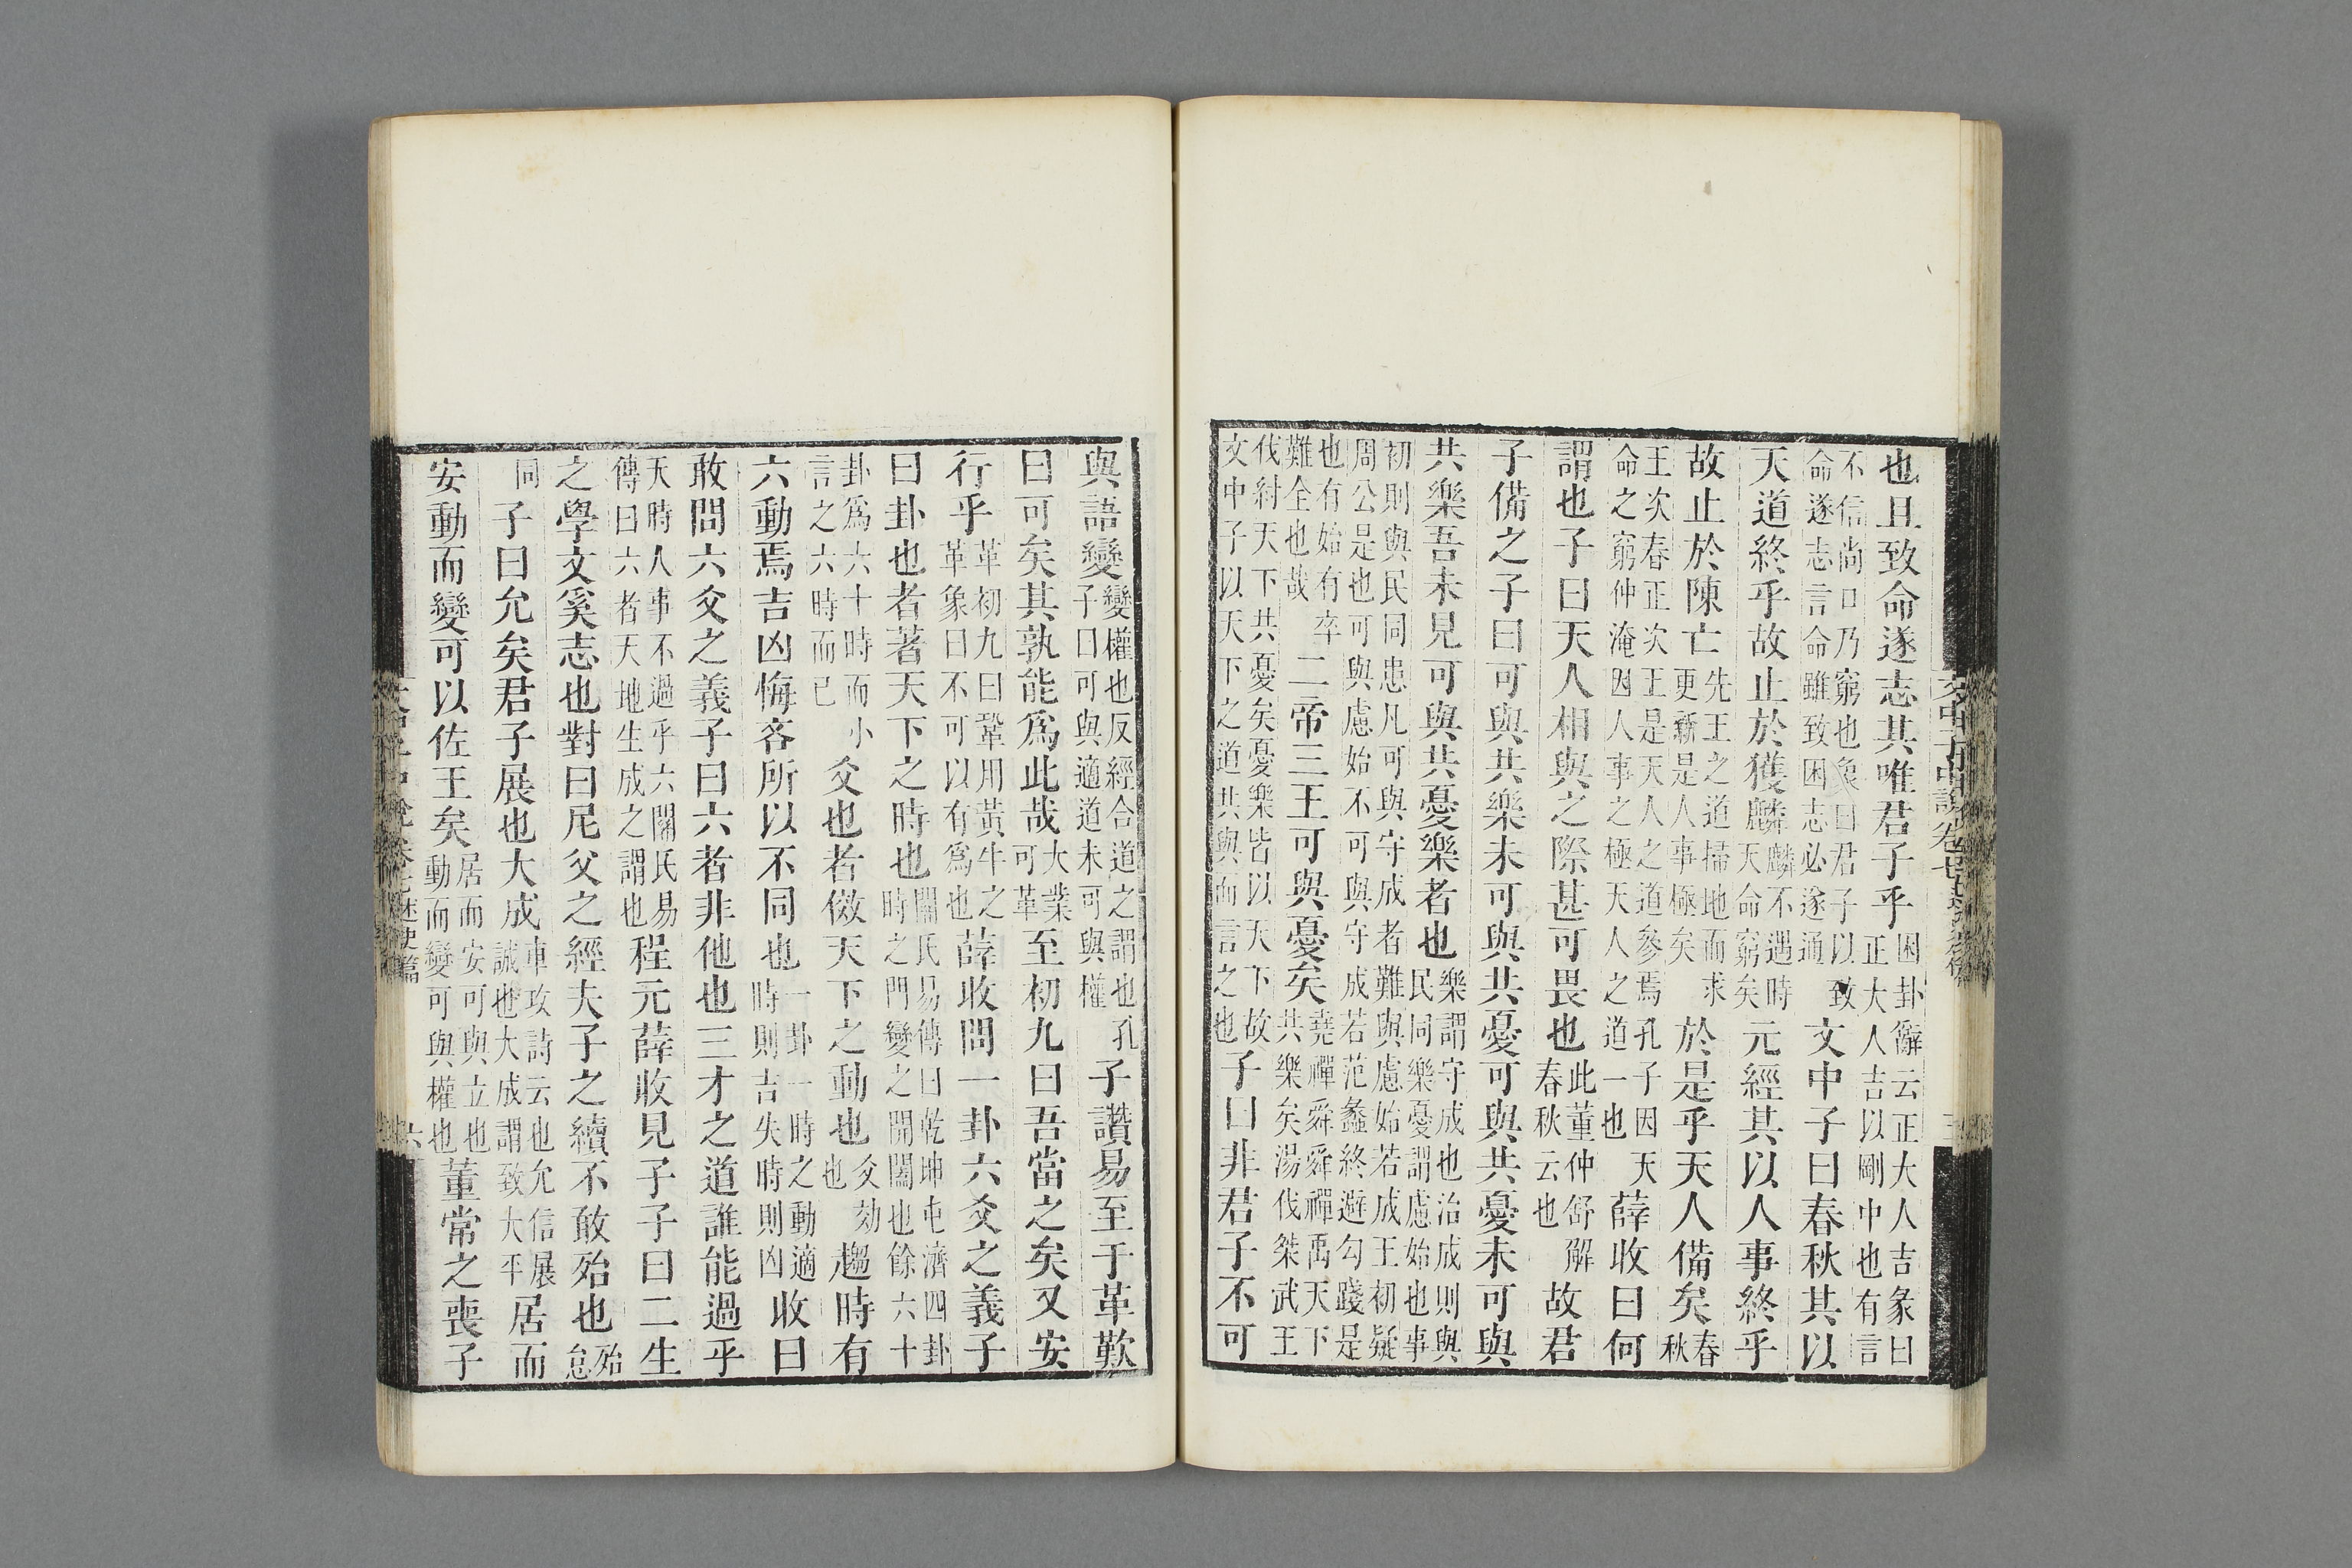 也且致命遂志其唯君子乎困卦辭云正大人吉彖曰正大人吉以剛中也有言
不信尚口乃窮也象曰君子以致命遂志言命雖致困志必遂通文中子曰春秋其以
天道終乎故止於獲麟麟不遇時天命窮矣元經其以人事終乎
故止於陳亡先王之道掃地而求更新是人事極矣於是乎天人備矣春秋
王次春正次王是天人之道參焉孔子因天命之窮仲淹因人事之極天人之道一也薛收曰何
謂也子曰天人相與之際甚可畏也此董仲舒解春秋云也故君
子備之子曰可與共樂未可與共憂可與共憂未可與
共樂吾未見可與共憂樂者也樂謂守成也治成則與民同樂憂謂慮始也事
初則與民同患凡可與守成者難與慮始若成王初疑周公是也可與慮始不可與守成若范蠡終避勾踐是
也有始有卒難全也哉二帝三王可與憂矣堯禪舜舜禪禹天下共樂矣湯伐桀武王
伐紂天下共憂矣憂樂皆以天下故文中子以天下之道共與而言之也子曰非君子不可
與語變變權也反經合道之謂也孔子曰可與適道未可與權子讚易至于革歎
曰可矣其孰能爲此哉大業可革至初九曰吾當之矣又安
行乎革初九曰鞏用黃牛之革象曰不可以有爲也薛收問一卦六爻之義子
曰卦也者著天下之時也關氏易傳曰乾坤屯濟四卦時之門變之開闔也餘六十
卦爲六十時而小言之六時而已爻也者傚天下之動也爻効也趨時有
六動焉吉凶悔吝所以不同也一卦一時之動適時則吉失時則凶收曰
敢問六爻之義子曰六者非他也三才之道誰能過乎
天時人事不過乎六關氏易傳曰六者天地生成之謂也程元薛收見子子曰二生
之學文奚志也對曰尼父之經夫子之續不敢殆也殆怠
同子曰允矣君子展也大成車攻詩云也允信展誠也大成謂致大平居而
安動而變可以佐王矣居而安可與立也動而變可與權也董常之喪子